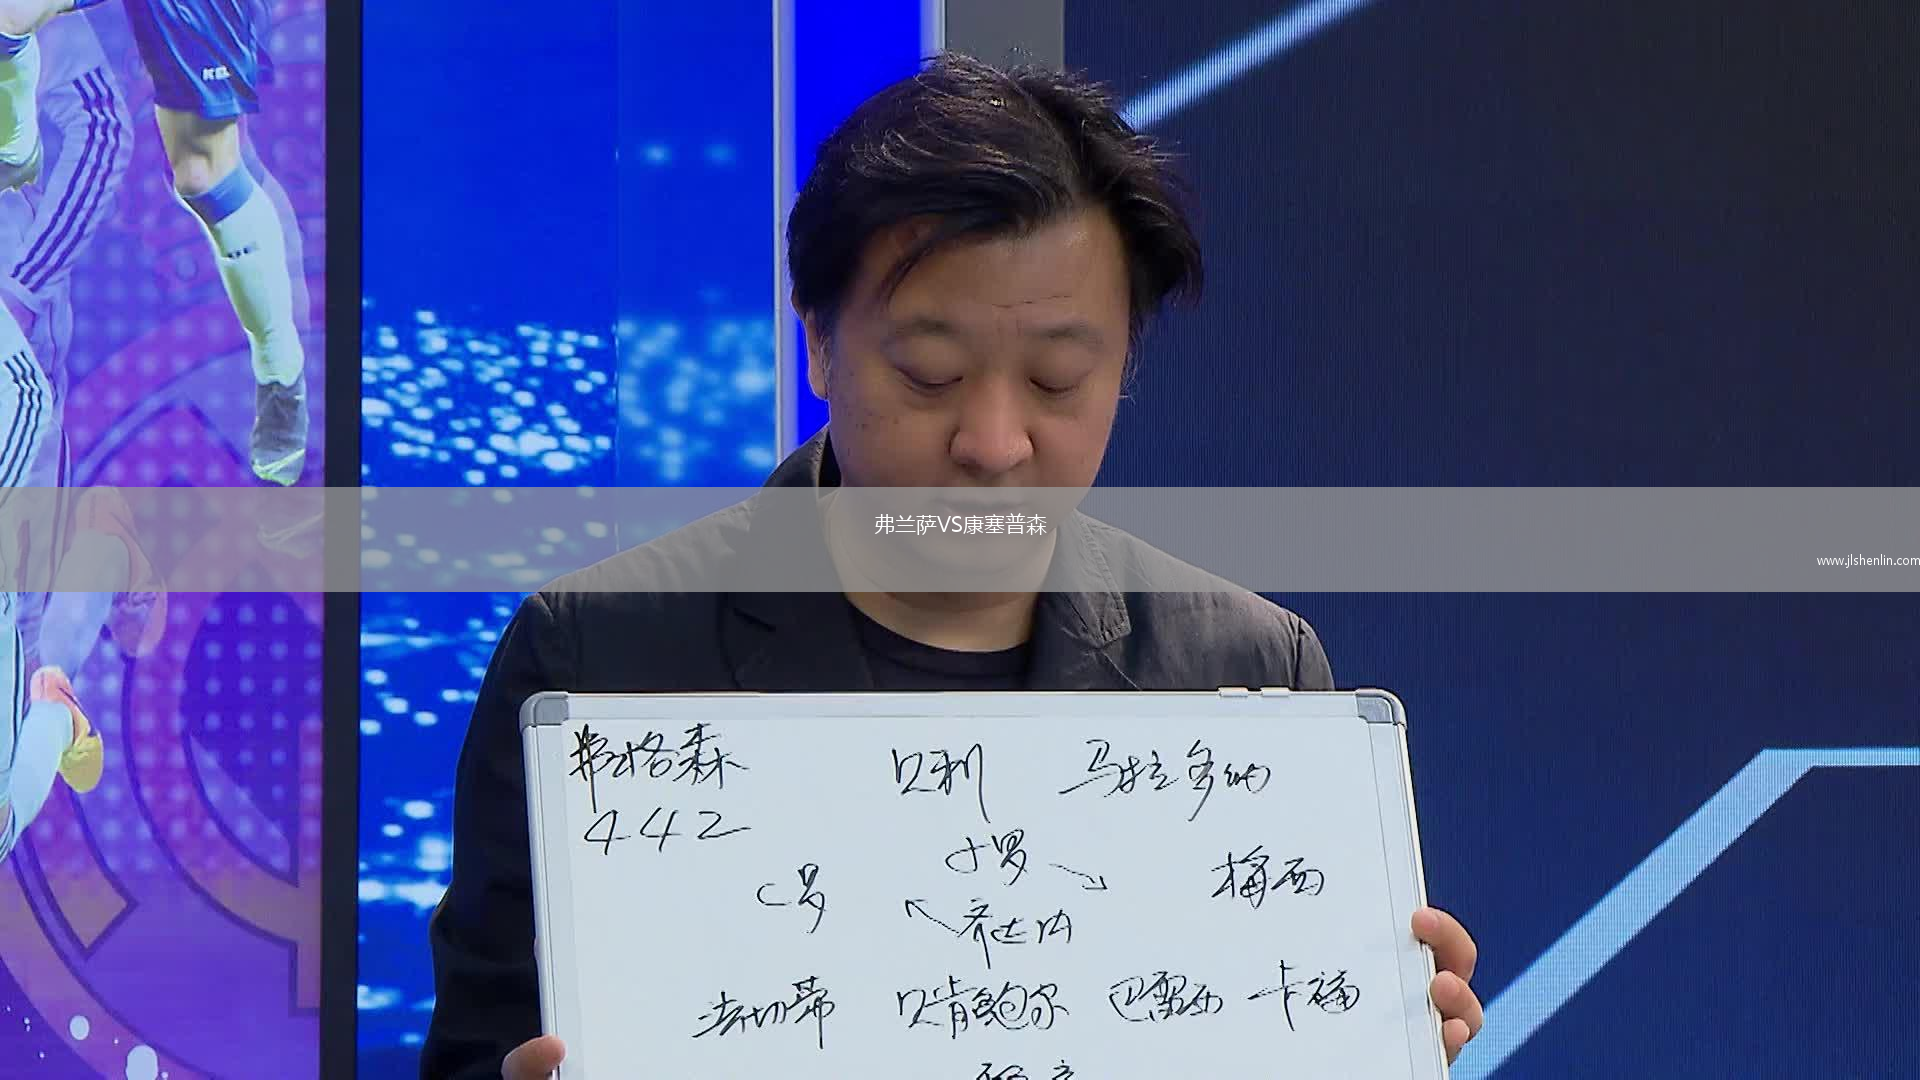 弗兰萨VS康塞普森
www.jlshenlin.com
弗格森 贝利 马拉多纳
442
小罗
C罗 梅西
齐达内
法切蒂 贝肯鲍尔 巴雷西 卡福